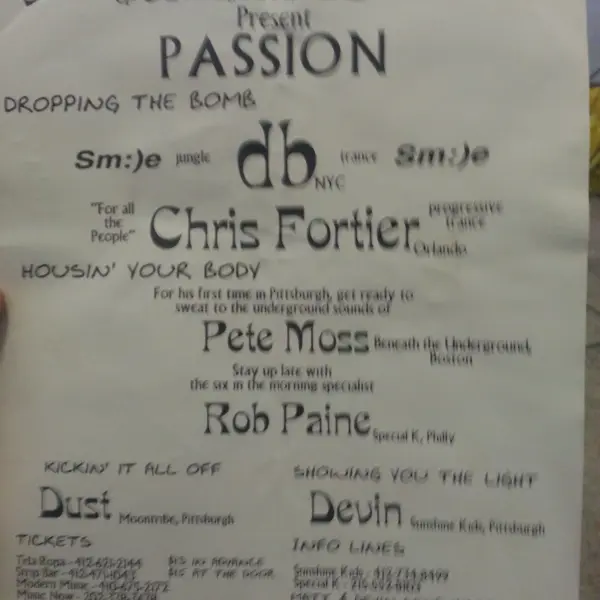 Present
PASSION
DROPPING THE BOMB
Sm:)e jungle db NYC trance Sm:)e
"For all the People" Chris Fortier progressive trance Orlando
HOUSIN' YOUR BODY
For his first time in Pittsburgh, get ready to
sweat to the underground sounds of
Pete Moss Beneath the Underground, Boston
Stay up late with
the six in the morning specialist
Rob Paine Special K, Philly
KICKIN' IT ALL OFF
Dust Moontribe, Pittsburgh
SHOWING YOU THE LIGHT
Devin Sunshine Kids, Pittsburgh
TICKETS
412-621-2144 $13 IN ADVANCE
Strip Bar - 412-471-1043 $15 AT THE DOOR
Modern Music - 410-675-2172
Music Now
INFO LINES
Sunshine Kids - 412-734-8499
Special K -